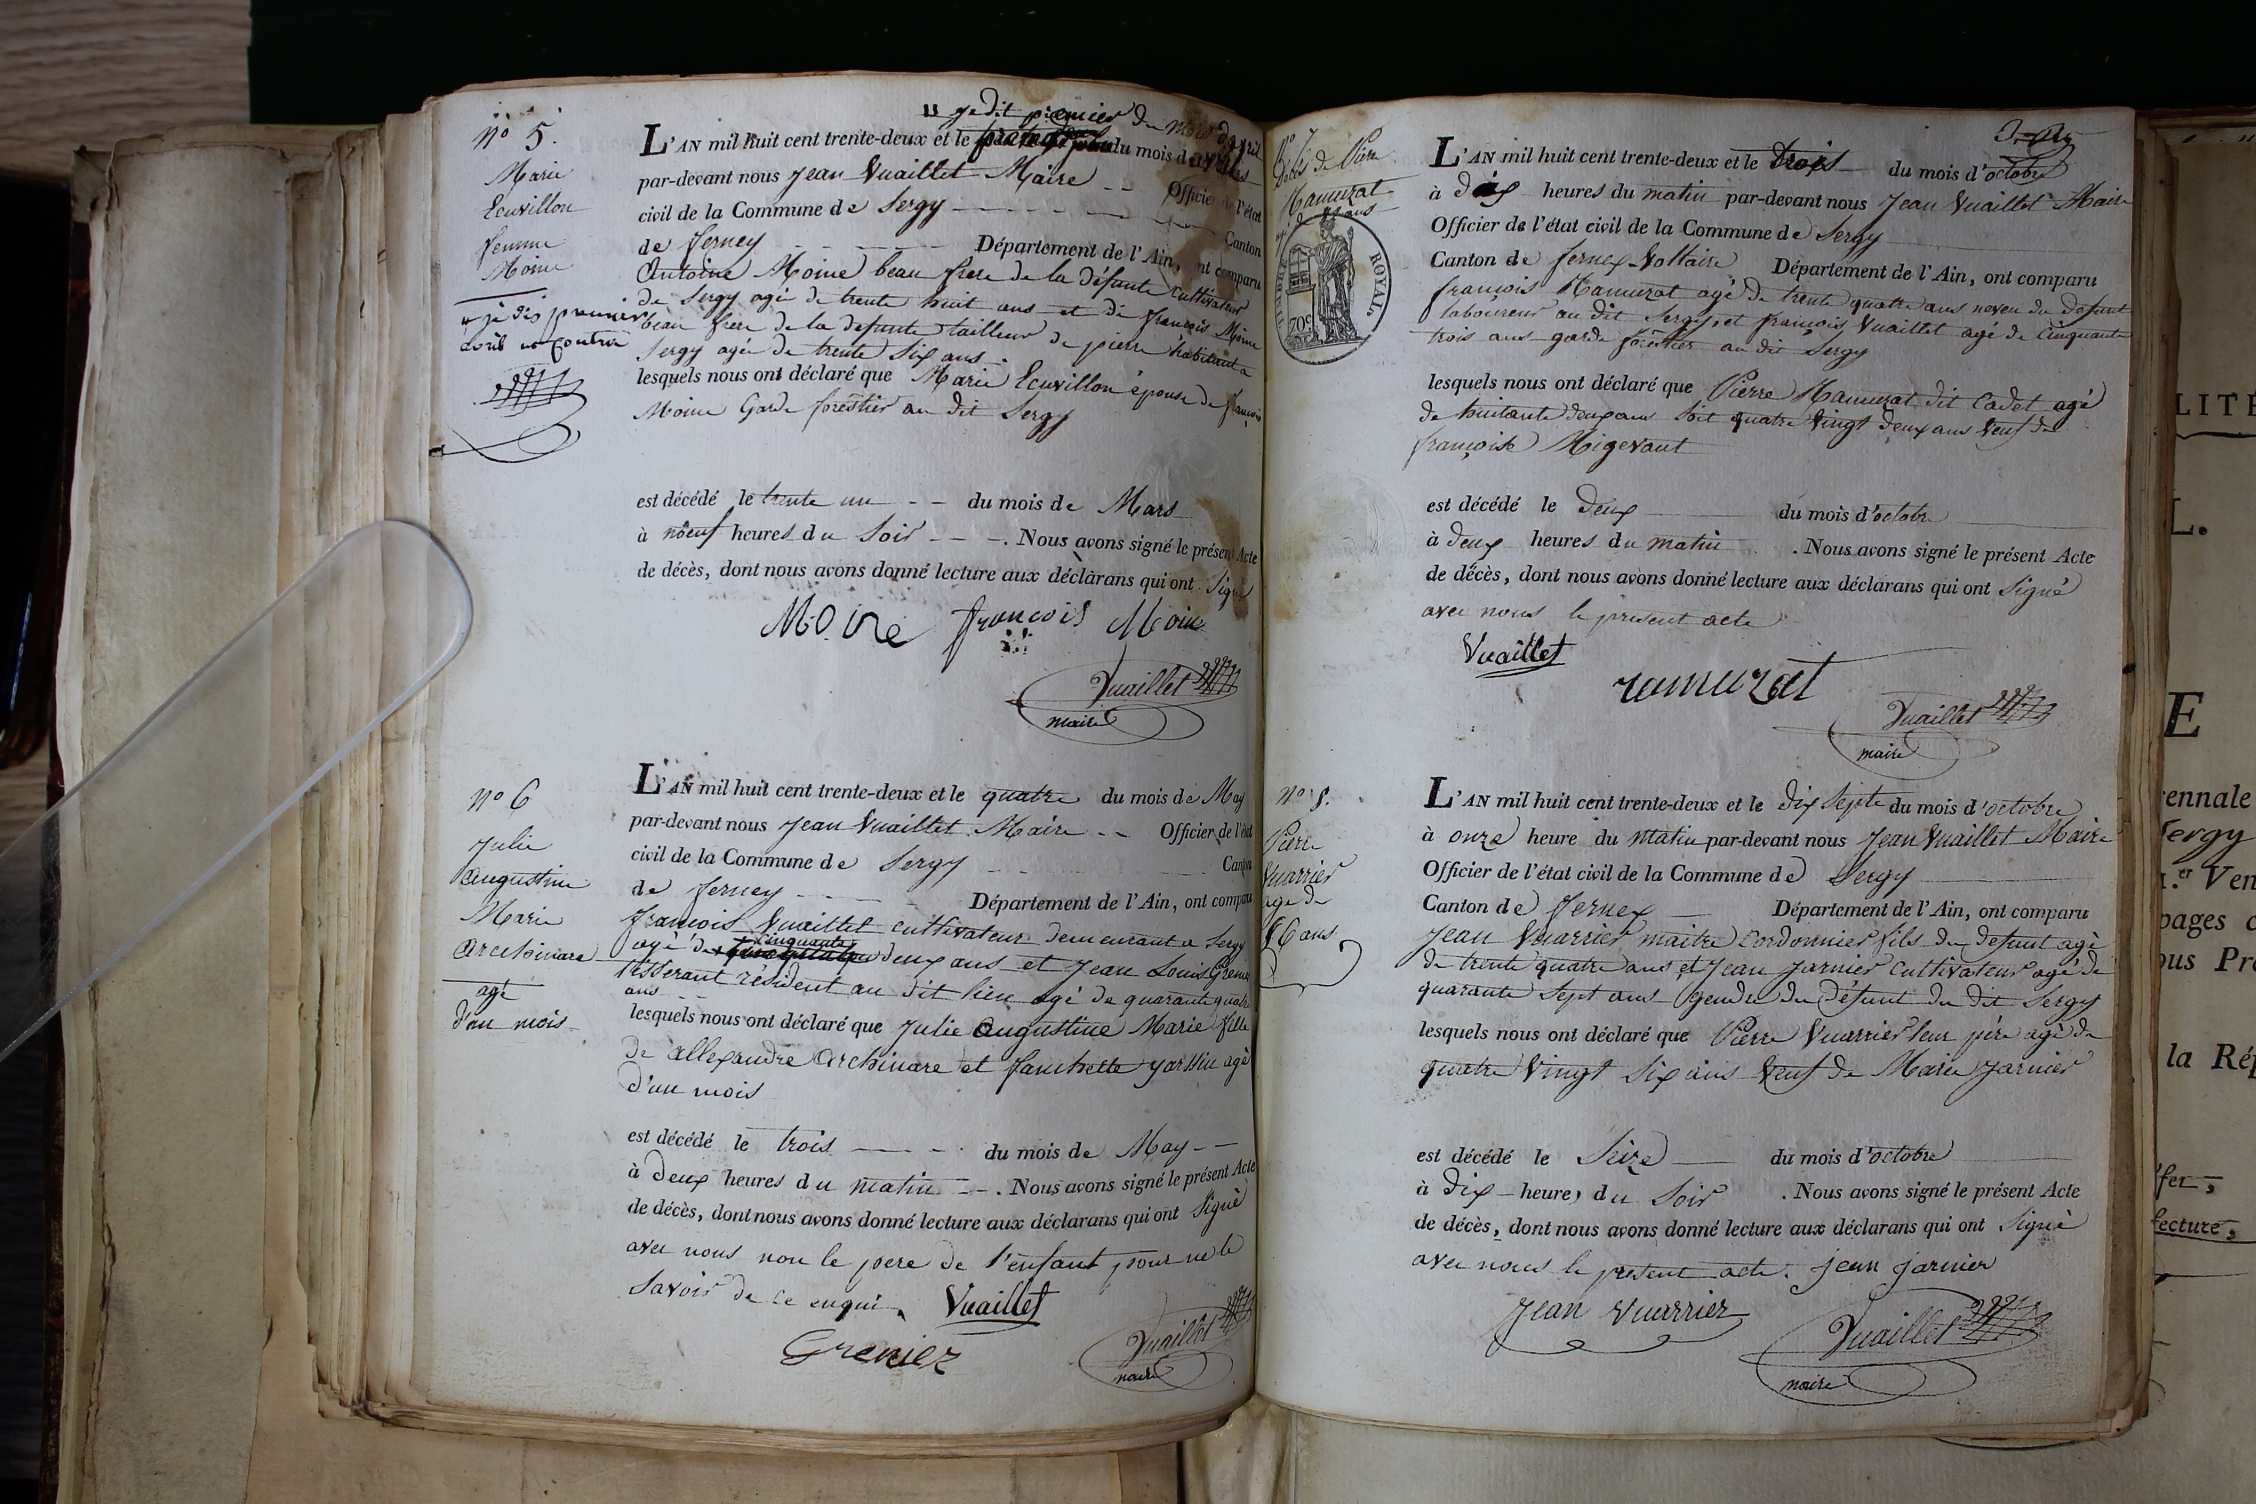 n° 5.
Marie
Ecuvillon
femme
Moine
je dis premier
avril et contre
je dit premier du mois d'avril
L'AN mil huit cent trente-deux et le du mois d
par-devant nous Jean Vuaillet Maire Officier de l'état
civil de la Commune de Sergy Canton
de ferney Département de l'Ain, ont comparu
Antoine Moine beau frere de la défunte Cultivateur
de Sergy agé de trente huit ans et de françois Moine
beau frere de la defunte tailleur de pierre habitant a
Sergy agée de trente six ans
lesquels nous ont déclaré que Marie Ecuvillon épouse de françois
Moine Garde forestier au dit Sergy
est décédé le trente un du mois de Mars
à nœuf heures du Soir . Nous avons signé le présent Acte
de décès, dont nous avons donné lecture aux déclarans qui ont Signé
Moine françois Moine
Vuaillet
maire
n° 6
Julie
augustine
Marie
archinare
agé
d'un mois
L'AN mil huit cent trente-deux et le quatre du mois de May
par-devant nous Jean Vuaillet Maire Officier de l'état
civil de la Commune de Sergy Canton
de ferney Département de l'Ain, ont comparu
françois Vuaillet cultivateur demeurant a Sergy
cinquante
agé de deux ans et Jean Louis Grenier
tisserant résident au dit lieu agé de quarante quatre
ans
lesquels nous ont déclaré que Julie augustine Marie fille
de allexandre archinare et fanchette yarssin agé
d'un mois
est décédé le trois du mois de May
à deux heures du matin . Nous avons signé le présent Acte
de décès, dont nous avons donné lecture aux déclarans qui ont Signé
avec nous non le pere de l'enfant pour ne le
Savoir de ce enqui. Vuaillet
Grenier
Vuaillet
maire
n° 7
Décès de Piere
Ramuzat
ans
TIMBRE ROYAL
70c
L'AN mil huit cent trente-deux et le trois du mois d'octobre
à dix heures du matin par-devant nous Jean Vuaillet Maire
Officier de l'état civil de la Commune de Sergy
Canton de ferney-Voltaire Département de l'Ain, ont comparu
françois Ramuzat agé de trente quatre ans neveu du defunt
laboureur au dit Sergy, et françois Vuaillet agé de Cinquante
trois ans garde forestier au dit Sergy
lesquels nous ont déclaré que Pierre Ramuzat dit Cadet agé
de huitante deux ans soit quatre Vingt deux ans veuf de
françoise Migevant
est décédé le Deux du mois d'octobre
à deux heures du matin . Nous avons signé le présent Acte
de décès, dont nous avons donné lecture aux déclarans qui ont Signé
avec nous le present acte
Vuaillet
ramuzat
Vuaillet
maire
n° 8.
Pierre
Vuarrier
age de
86 ans
L'AN mil huit cent trente-deux et le dix septe du mois d'octobre
à onze heure du matin par-devant nous Jean Vuaillet Maire
Officier de l'état civil de la Commune de Sergy
Canton de ferney Département de l'Ain, ont comparu
Jean Vuarrier maitre Cordonnier fils du defunt agé
de trente quatre ans et Jean Jarnier cultivateur agé de
quarante Sept ans gendre du défunt du dit Sergy
lesquels nous ont déclaré que Pierre Vuarrier leur père agé de
quatre Vingt Six ans veuf de Marie Jarnier
est décédé le Seize du mois d'octobre
à dix heures du Soir . Nous avons signé le présent Acte
de décès, dont nous avons donné lecture aux déclarans qui ont Signé
avec nous le present acte. jean jarnier
Jean Vuarrier
Vuaillet
maire
LITÉ
L.
E
ennale
Sergy
er Ven
pages
la Ré
fer;
fecture,